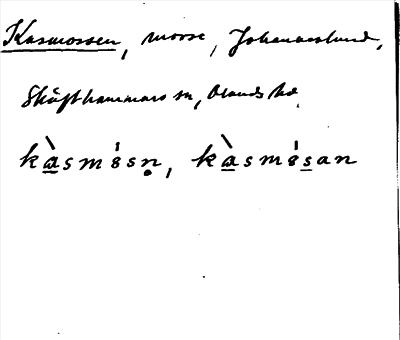 Kasmossen, mosse, Johanneslund,
Skäfthammars sn, Olands hd.
kàsmósn̥, kàsmósan